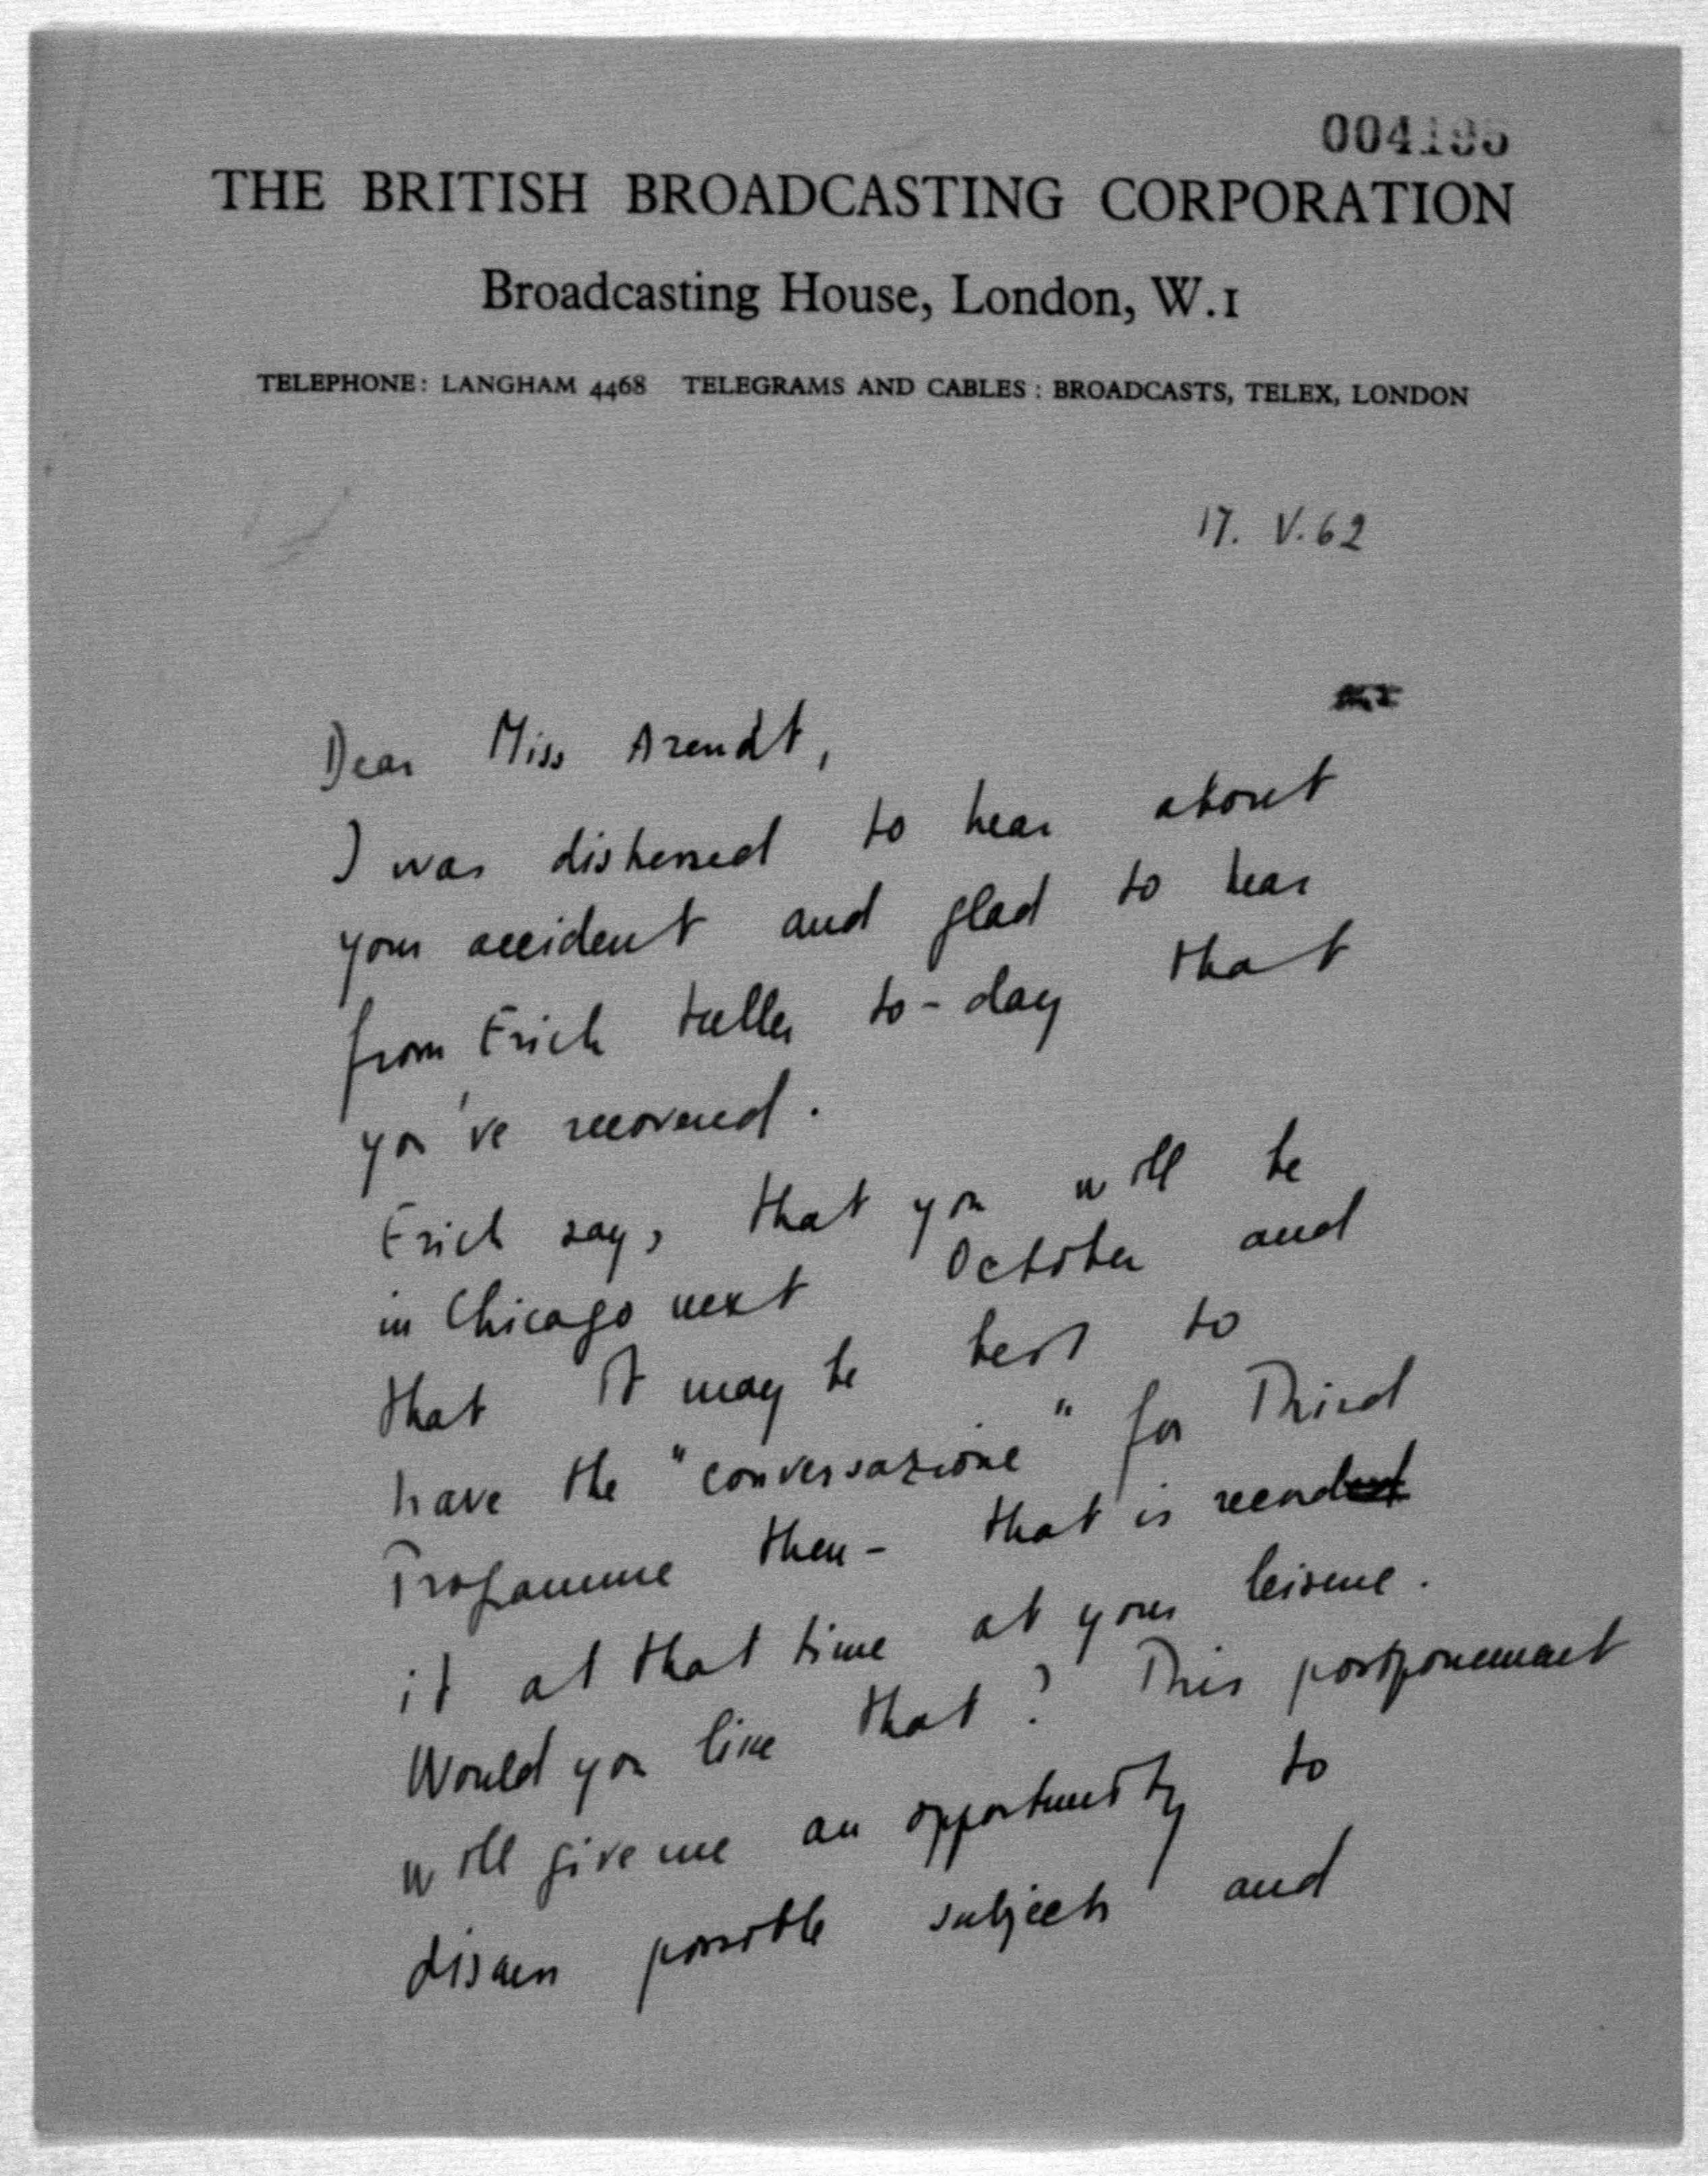 THE BRITISH BROADCASTING CORPORATION
Broadcasting House, London, W.1
TELEPHONE: LANGHAM 4468 TELEGRAMS AND CABLES: BROADCASTS, TELEX, LONDON
17. V. 62
Dear Miss Arendt,
I was distressed to hear about
your accident and glad to hear
from Erich to-day that
you've recovered.
Erich says that you will be
in Chicago next October and
that it may be best to
have the "conversazione" for Third
Programme then - that is record
it at that time at your leisure.
Would you like that? This postponement
will give me an opportunity to
discuss possible subjects and